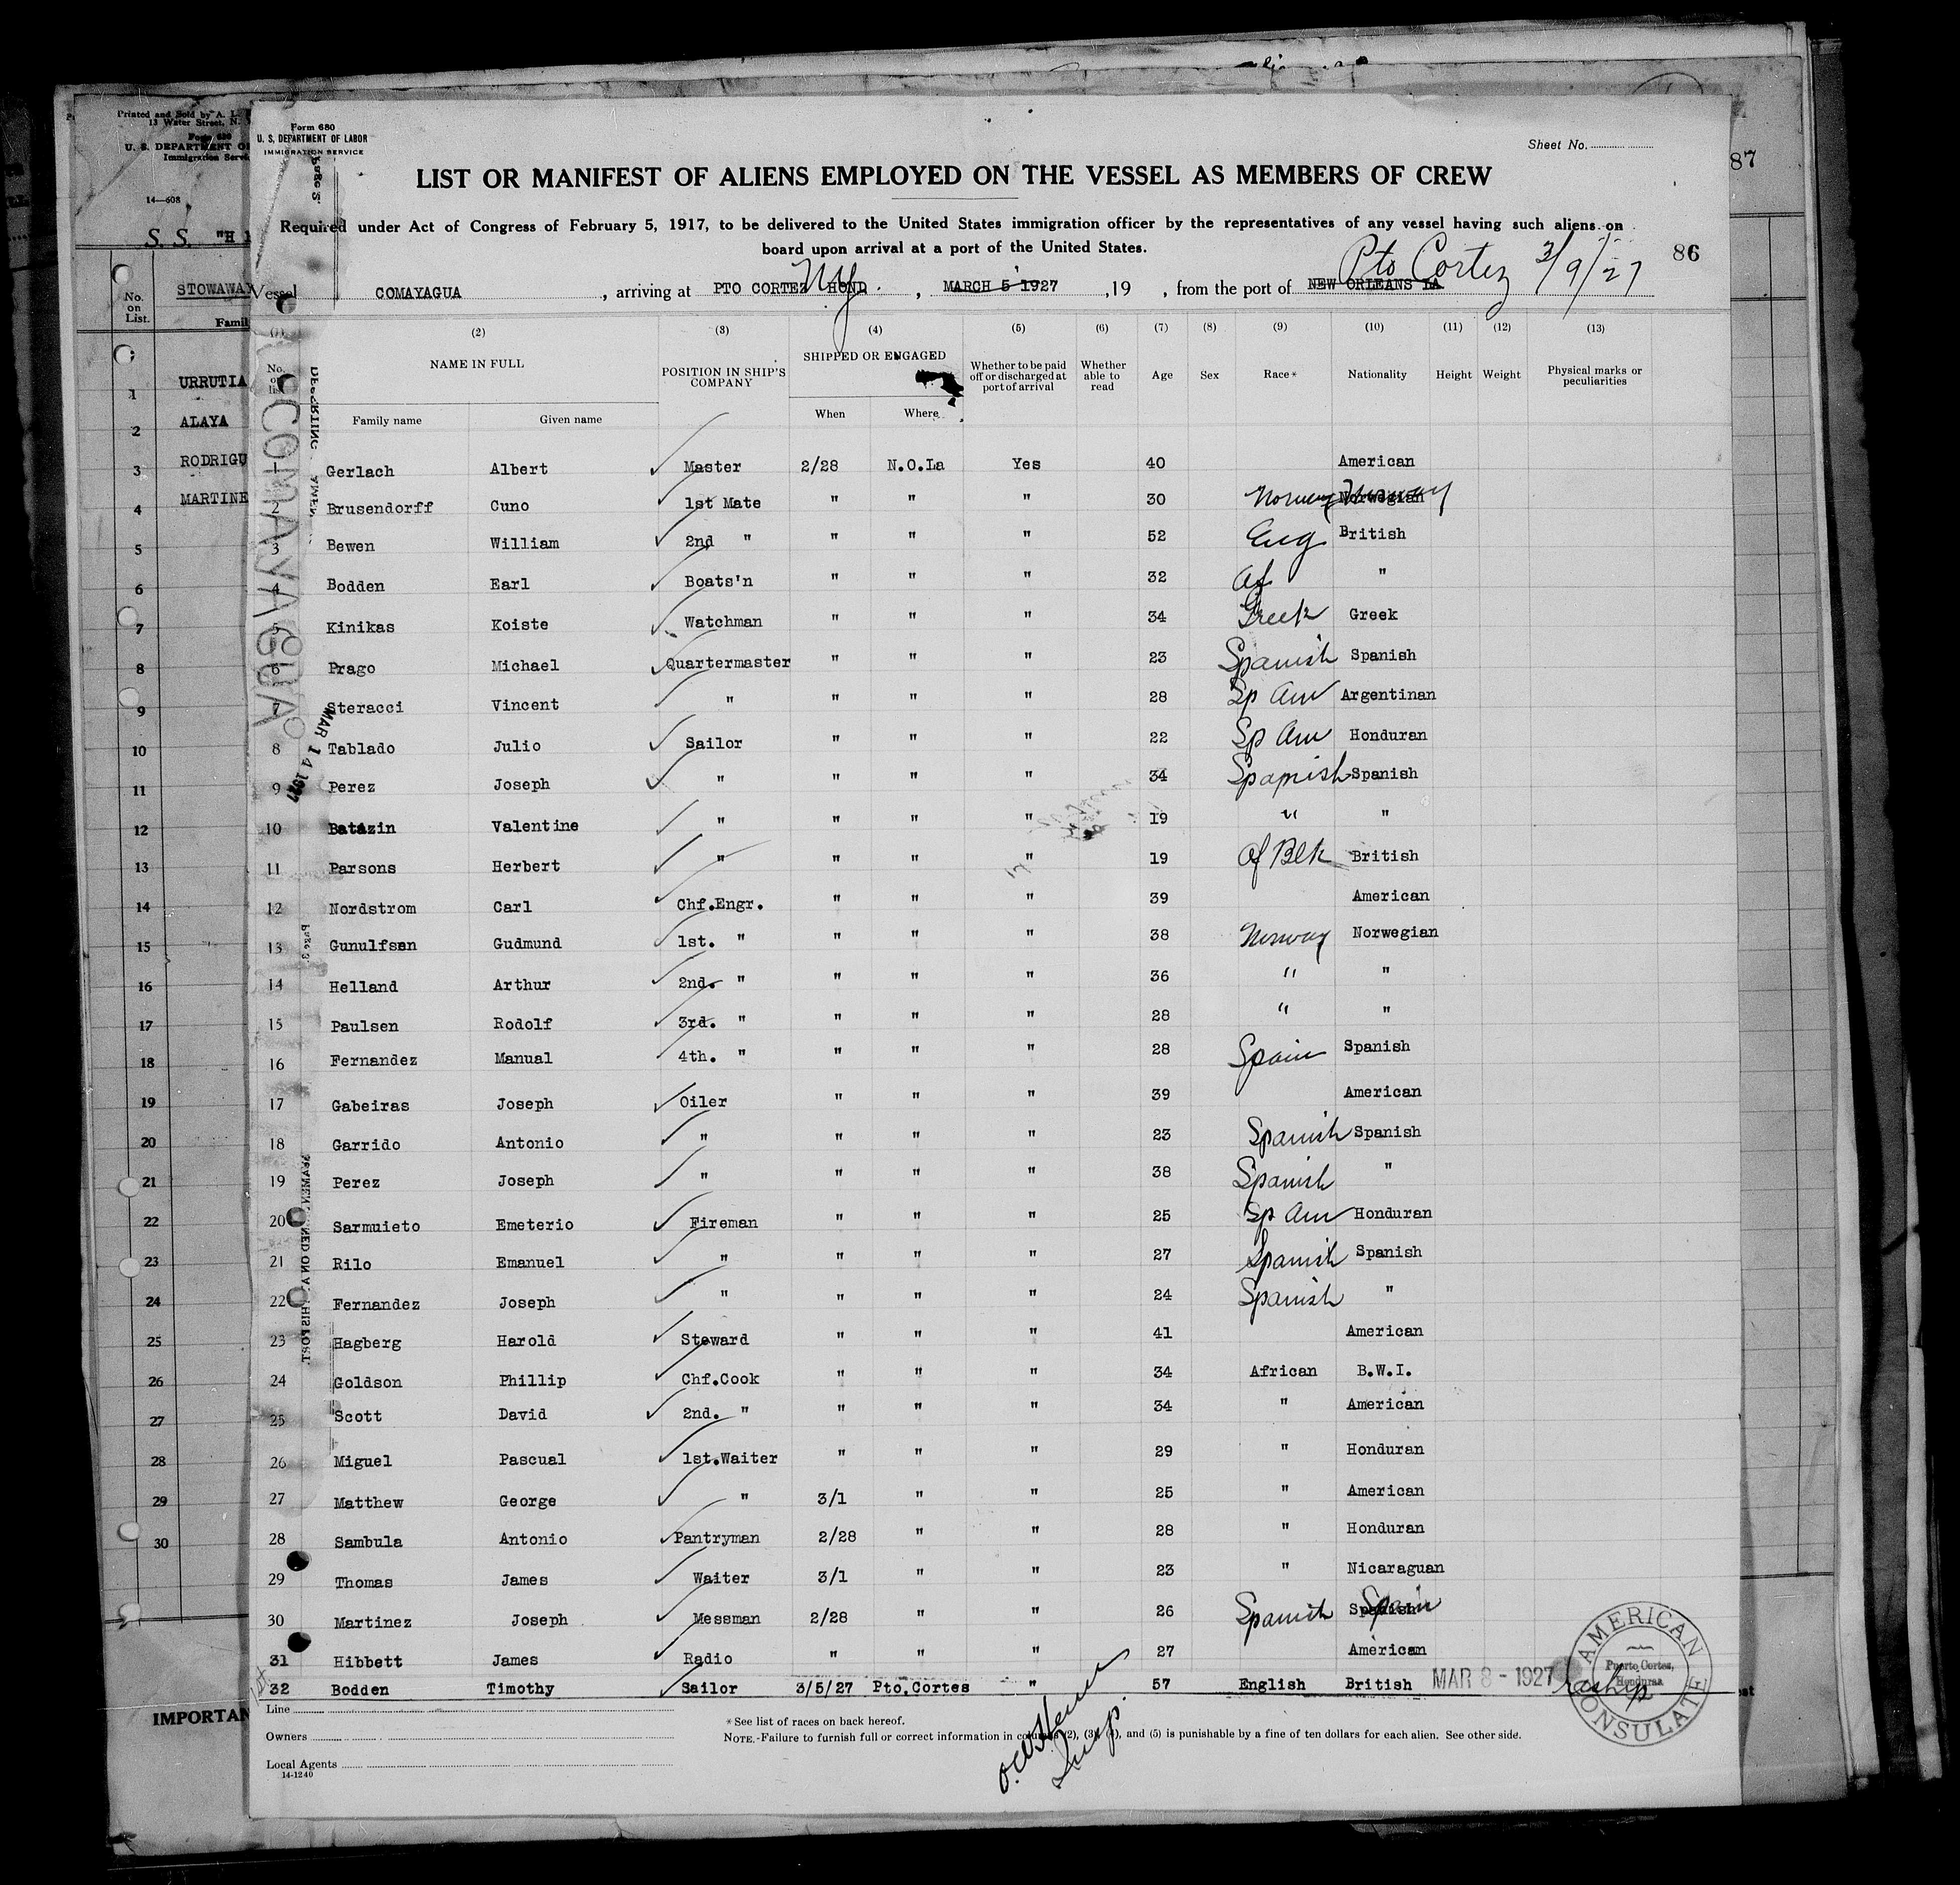 Printed and Sold by A. L.
13 Water Street, N.
Form 680
U. S. DEPARTMENT O
Immigration Servi
14—608
S. S. "H
No. on List.
STOWAWAY
Famil
1 URRUTIA
2 ALAYA
3 RODRIGU
4 MARTINE
5
6
7
8
9
10
11
12
13
14
15
16
17
18
19
20
21
22
23
24
25
26
27
28
29
30
IMPORTAN
87
Form 680
U. S. DEPARTMENT OF LABOR
IMMIGRATION SERVICE
Sheet No.
LIST OR MANIFEST OF ALIENS EMPLOYED ON THE VESSEL AS MEMBERS OF CREW
Required under Act of Congress of February 5, 1917, to be delivered to the United States immigration officer by the representatives of any vessel having such aliens on
board upon arrival at a port of the United States.
86
NY Pto Cortez 3/9/27
Vessel COMAYAGUA, arriving at PTO CORTEZ HOND, MARCH 5 1927, 19 , from the port of NEW ORLEANS LA
(1) (2) (3) (4) (5) (6) (7) (8) (9) (10) (11) (12) (13)
No. on list NAME IN FULL POSITION IN SHIP'S COMPANY SHIPPED OR ENGAGED Whether to be paid off or discharged at port of arrival Whether able to read Age Sex Race* Nationality Height Weight Physical marks or peculiarities
Family name Given name When Where
Gerlach Albert Master 2/28 N.O.La Yes 40 American
2 Brusendorff Cuno 1st Mate " " " 30 Norway Norwegian Norway
3 Bewen William 2nd " " " " 52 Eng British
4 Bodden Earl Boats'n " " " 32 Af "
5 Kinikas Koiste Watchman " " " 34 Greek Greek
6 Prago Michael Quartermaster " " " 23 Spanish Spanish
7 Steracci Vincent " " " " 28 Sp Am Argentinan
8 Tablado Julio Sailor " " " 22 Sp Am Honduran
9 Perez Joseph " " " " 34 Spanish Spanish
10 Batazin Valentine " " " " 19 " "
11 Parsons Herbert " " " " 19 Af Blk British
12 Nordstrom Carl Chf.Engr. " " " 39 American
13 Gunulfsen Gudmund 1st. " " " " 38 Norway Norwegian
14 Helland Arthur 2nd. " " " " 36 " "
15 Paulsen Rodolf 3rd. " " " " 28 " "
16 Fernandez Manual 4th. " " " " 28 Spain Spanish
17 Gabeiras Joseph Oiler " " " 39 American
18 Garrido Antonio " " " " 23 Spanish Spanish
19 Perez Joseph " " " " 38 Spanish "
20 Sarmuieto Emeterio Fireman " " " 25 Sp Am Honduran
21 Rilo Emanuel " " " " 27 Spanish Spanish
22 Fernandez Joseph " " " " 24 Spanish "
23 Hagberg Harold Steward " " " 41 American
24 Goldson Phillip Chf.Cook " " " 34 African B.W.I.
25 Scott David 2nd. " " " " 34 " American
26 Miguel Pascual 1st.Waiter " " " 29 " Honduran
27 Matthew George " 3/1 " " 25 " American
28 Sambula Antonio Pantryman 2/28 " " 28 " Honduran
29 Thomas James Waiter 3/1 " " 23 " Nicaraguan
30 Martinez Joseph Messman 2/28 " " 26 Spanish Spanish Spain
31 Hibbett James Radio " " " 27 American
32 Bodden Timothy Sailor 3/5/27 Pto.Cortes " 57 English British
MAR 8 - 1927
AMERICAN CONSULATE
Puerto Cortes, Honduras
COMAYAGUA
MAR 14 1927
Line
Owners
Local Agents
14-1240
*See list of races on back hereof.
NOTE.-Failure to furnish full or correct information in columns (2), (3), (4), and (5) is punishable by a fine of ten dollars for each alien. See other side.
Insp.